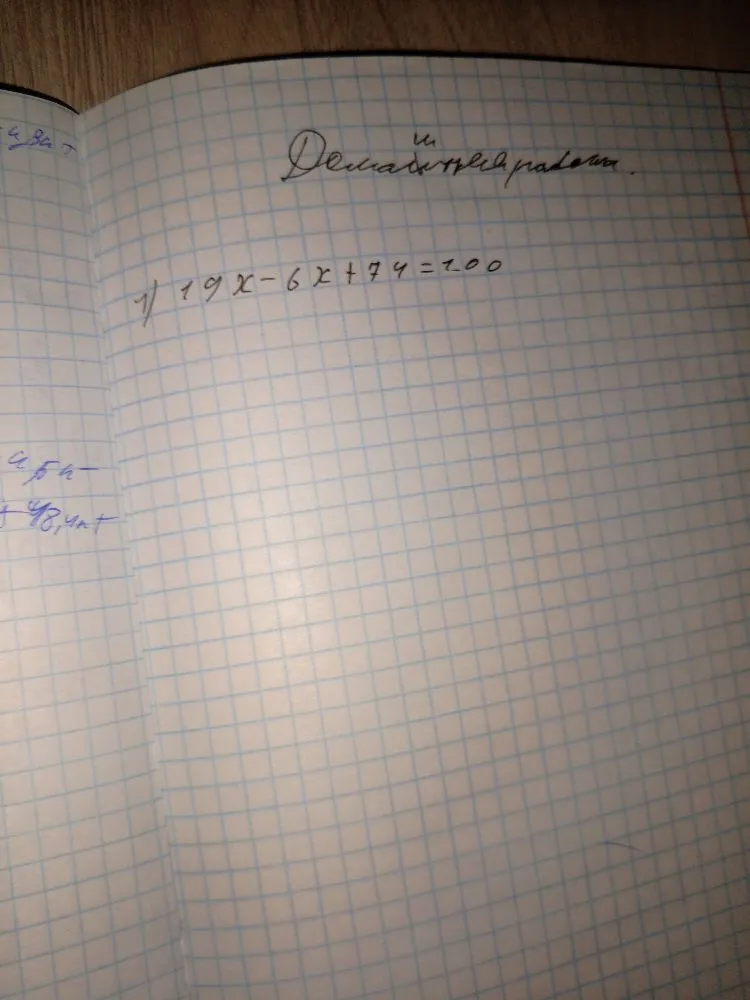 Домашняя работа.
1) 19x - 6x + 74 = 100